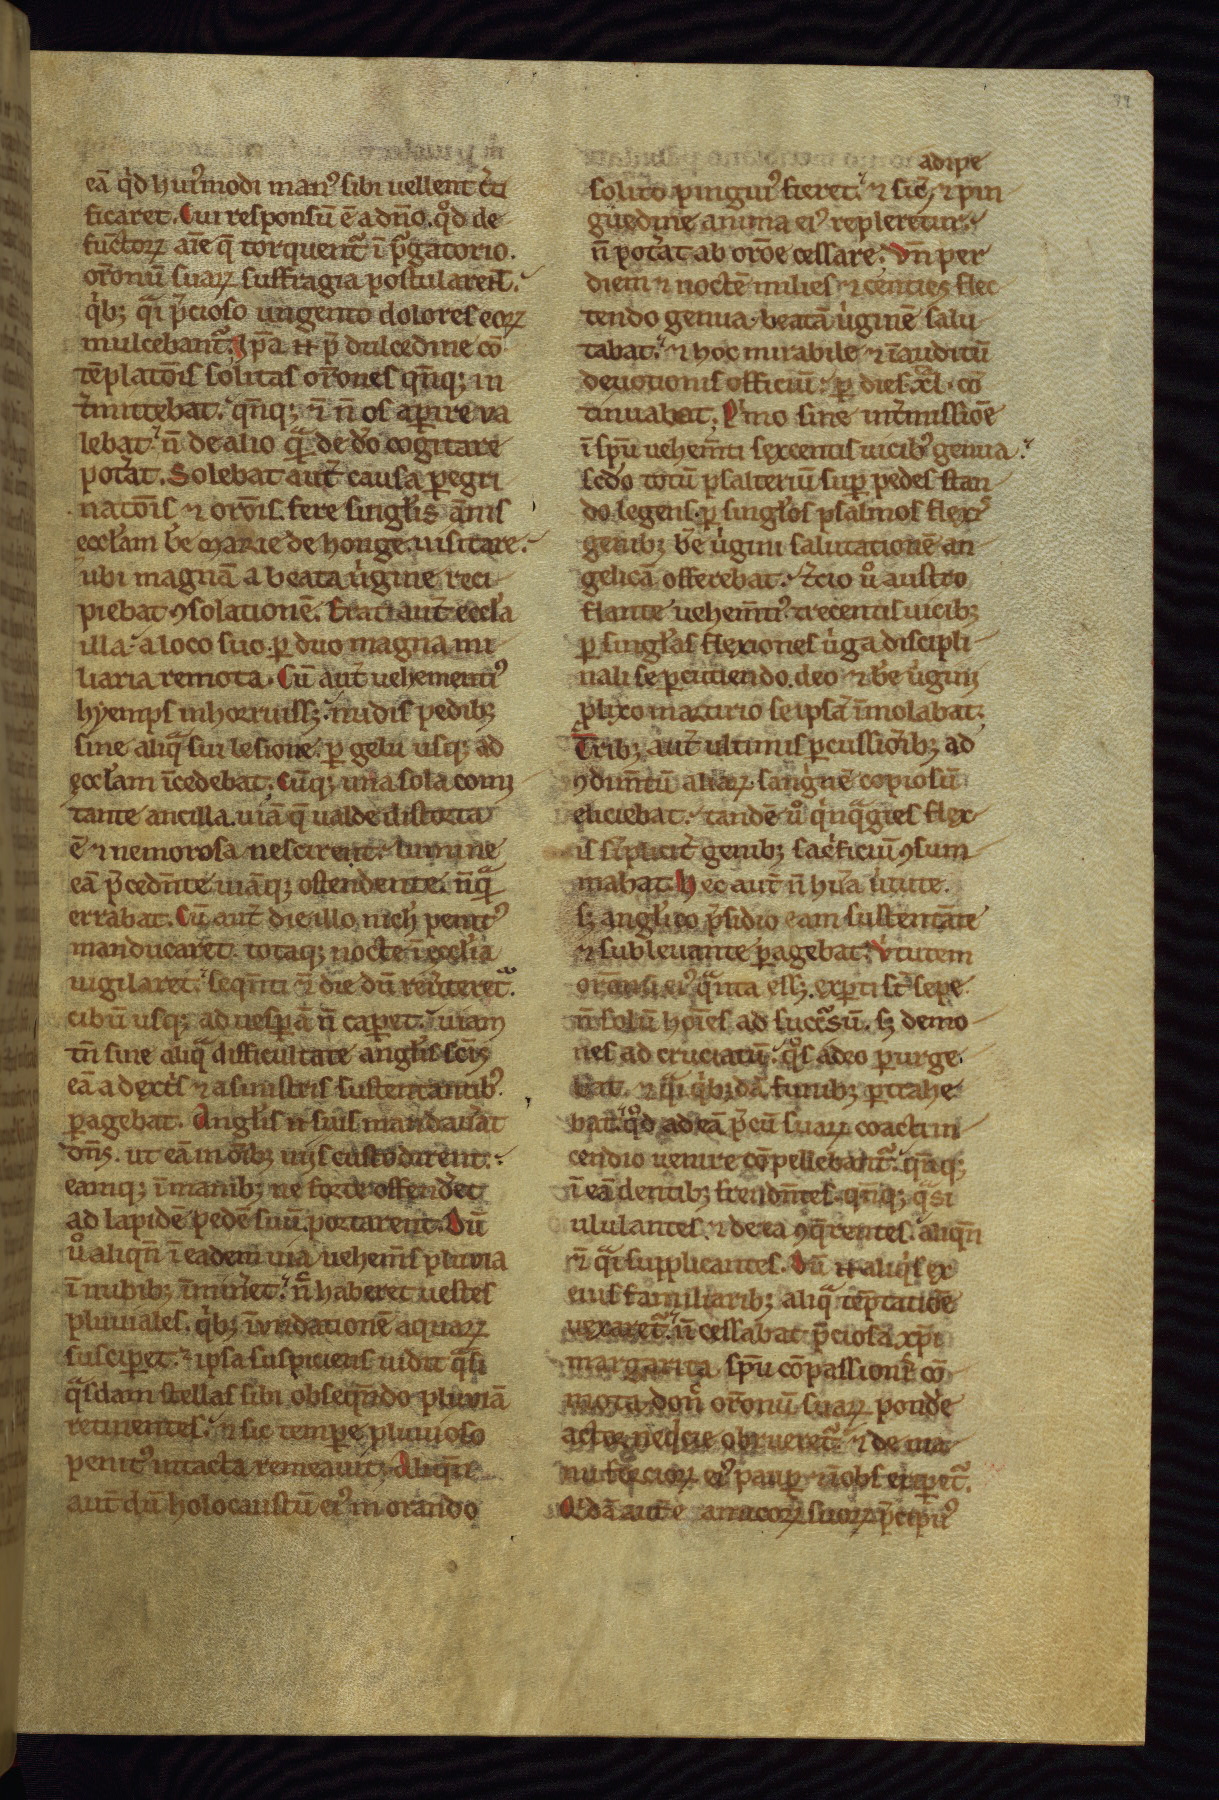 eā q̇d hui᾽modi man᾽ sibi uellent c̄ti
ficaret. Cui responsū ē a dn̄o. qd̊ de
functoꝝ aīe q̄ torquent᷑ ī p᷑gatorio.
or̄onū suaꝝ suffragia postularent.
q̇bꝫ q᷑i p̄cioso ungento dolores eoꝝ
mulcebant᷑. Ipa ꝑ p̄ dulcedine cō
tēplatōis solitas or̄ones qn̄qꝫ in
t̄mittebat. qn̄qꝫ ⁊ n̄ os aꝑire ua
lebat. n̄ de alio q᷑ de deo cogitare
pot̄at. Solebat aut̄ causa ꝑegri
natōis ⁊ or̄ōis. fere singl̓is ānis
eccl̓am b̄e marie de honge. uisitare.
ubi magnā a beata ůgine reci
piebat ꝯsolationē. Erat aut̄ eccl̓a
illa a loco suo ꝑ duo magna mi
liaria remota. Cū aut̄ uehementi᾽
hyemps inhorruissꝫ. nudis pedibꝫ
sine aliq᷑ sui lesione ꝑ gelu usqꝫ ad
eccl̓am īcedebat. Cūqꝫ una sola comi
tante ancilla. uiā q̄ ualde distorta
ē ⁊ nemorosa nescirent. lumine
eā p̄cedn̄te uiāqꝫ ostendente. nūq᷑
errabat. Cū aut̄ die illo nich̓ penit᾽
manducaret. totaqꝫ nocte ī eccl̓ia
uigilaret. seqn̄ti ⁊̄ die dū reu̓teret᷑.
cibū usqꝫ ad uesꝑā n̄ caꝑet. uiam
tn̄ sine aliq᷑ difficultate angl̓is sc̄is
eā a dext̓s ⁊ a sinistris sustentantib᾽.
ꝑagebat. Angl̓is n̄ suis mandauat
dn̄s. ut eā in oībꝫ uiis custodirent.
eamqꝫ ī manibꝫ ne forte offend̓et
ad lapidē pedē suū. portarent. Dū
ů aliqn̄ ī eadem uia uehem̄s pluuia
ī nubibꝫ īmin̓et. n̄ haberet uestes
pluuiales. q̇bꝫ īūdationē aquaꝝ
susciꝑet. ipsa suspiciens uidit q᷑si
q᷑sdam stellas sibi obseqn̄do pluuiā
retinentes. ⁊ sic temꝑe pluuioso
penit᾽ intacta remeauit. Aliqn̄
aut̄ dū holocaustū ei᾽ in orando
adipe
solito pingui᾽ fieret. ⁊ sic, ⁊ pin
guedine anima ei᾽ repleretur.
n̄ pot̄at ab or̄oe cessare. Vn̄ per
diem ⁊ noctē milies ⁊ centies flec
tendo genua. beatā ůginē salu
tabat. ⁊ hoc mirabile ⁊ īauditū
deuotionis officiū. ꝑ dies xl. cō
tinuabat. P̓mo sine int̓missiōe
ī sp̄u uehem̄ti sexcentis uicib᾽ genua.
sc̄do totū psalteriū suꝑ pedes stan
do legens. ꝑ singl̓os psalmos flexi᾽
genibꝫ b̄e ůgini salutationē an
gelicā offerebat. T̓cio ů austro
flante uehem̄ti᾽ trecentis uicibꝫ
ꝑ singl̓as flexiones ůga discipli
nali se ꝑcutiendo. deo ⁊ b̄e ůgini
ꝓlixo martirio seipsā īmolabat.
Tribꝫ aut̄ ultimis ꝑcussiōibꝫ ad
ꝯdim̄tū aliaꝝ. sang᾽nē copiosū
eliciebat. tandē ů q̇nq᷑gies flex
is s̄plicit̓ genibꝫ sac̓ficiū ꝯsum
mabat. Hec aut̄ n̄ hu᷑a ůtute.
sꝫ angl̓ico p̄sidio eam sustentāte
⁊ subleuante ꝑagebat. V̓tutem
or̄onis ei᾽ q᷑nta essꝫ. exꝑti st̄ sepe
n̄ solū hōies ad succ̓sū. sꝫ demo
nes ad cruciatū. q̊s adeo ꝑurge
bat. ⁊ q᷑i q̇bꝫdā funibꝫ ꝑtrahe
bat. qd̊ ad eā p̄cū suaꝝ coacti in
cendio uenire cōpellebant᷑. qn̄qꝫ
ī eā dentibꝫ frendn̄tes. qn̄qꝫ q᷑si
ululantes. ⁊ de ea ꝯq̄rentes. aliqn̄
⁊̄ q᷑i supplicantes. Dū aliq᾽s ex
eius familiaribꝫ aliq᷑ tēptatiōe
uexaret᷑. n̄ cessabat p̄ciosa xp̄i
margarita sp̄u cōpassionis cō
mota. don̄ or̄onū suaꝝ pond̓e
actor neq̇cie obrueret᷑. ⁊ de ma
nu forcioꝝ ei᾽ pauꝑ ⁊ nobs eriꝑet᷑.
Q᾽dā aut̄ e amicoꝝ suoꝝ p̄cipu᾽